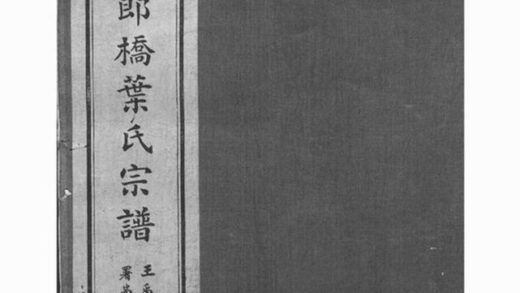 郎橋葉氏宗譜
王
署